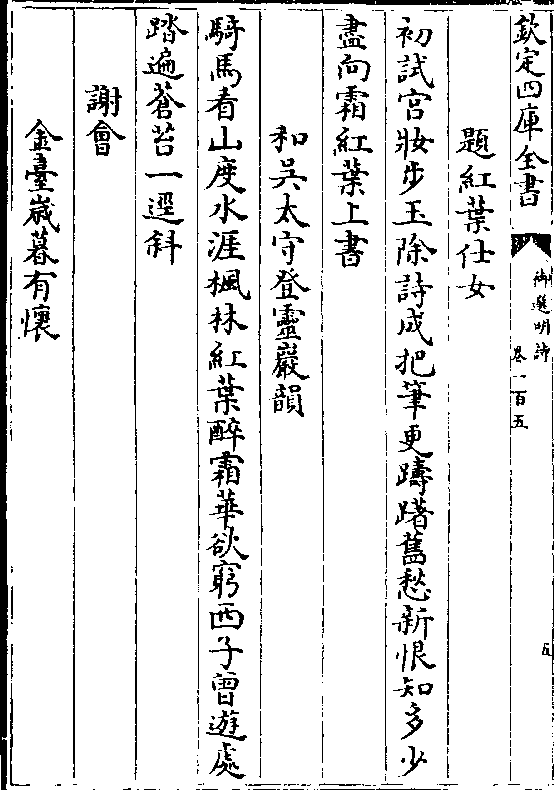 欽定四庫全書
御選明詩
卷一百五
五
題紅葉仕女
初試宮妝步玉除詩成把筆更躊躇舊愁新恨知多少
盡向霜紅葉上書
和吳太守登靈巖韻
騎馬看山度水涯楓林紅葉醉霜華欲窮西子曾遊處
踏遍蒼苔一逕斜
謝會
金臺歲暮有懷